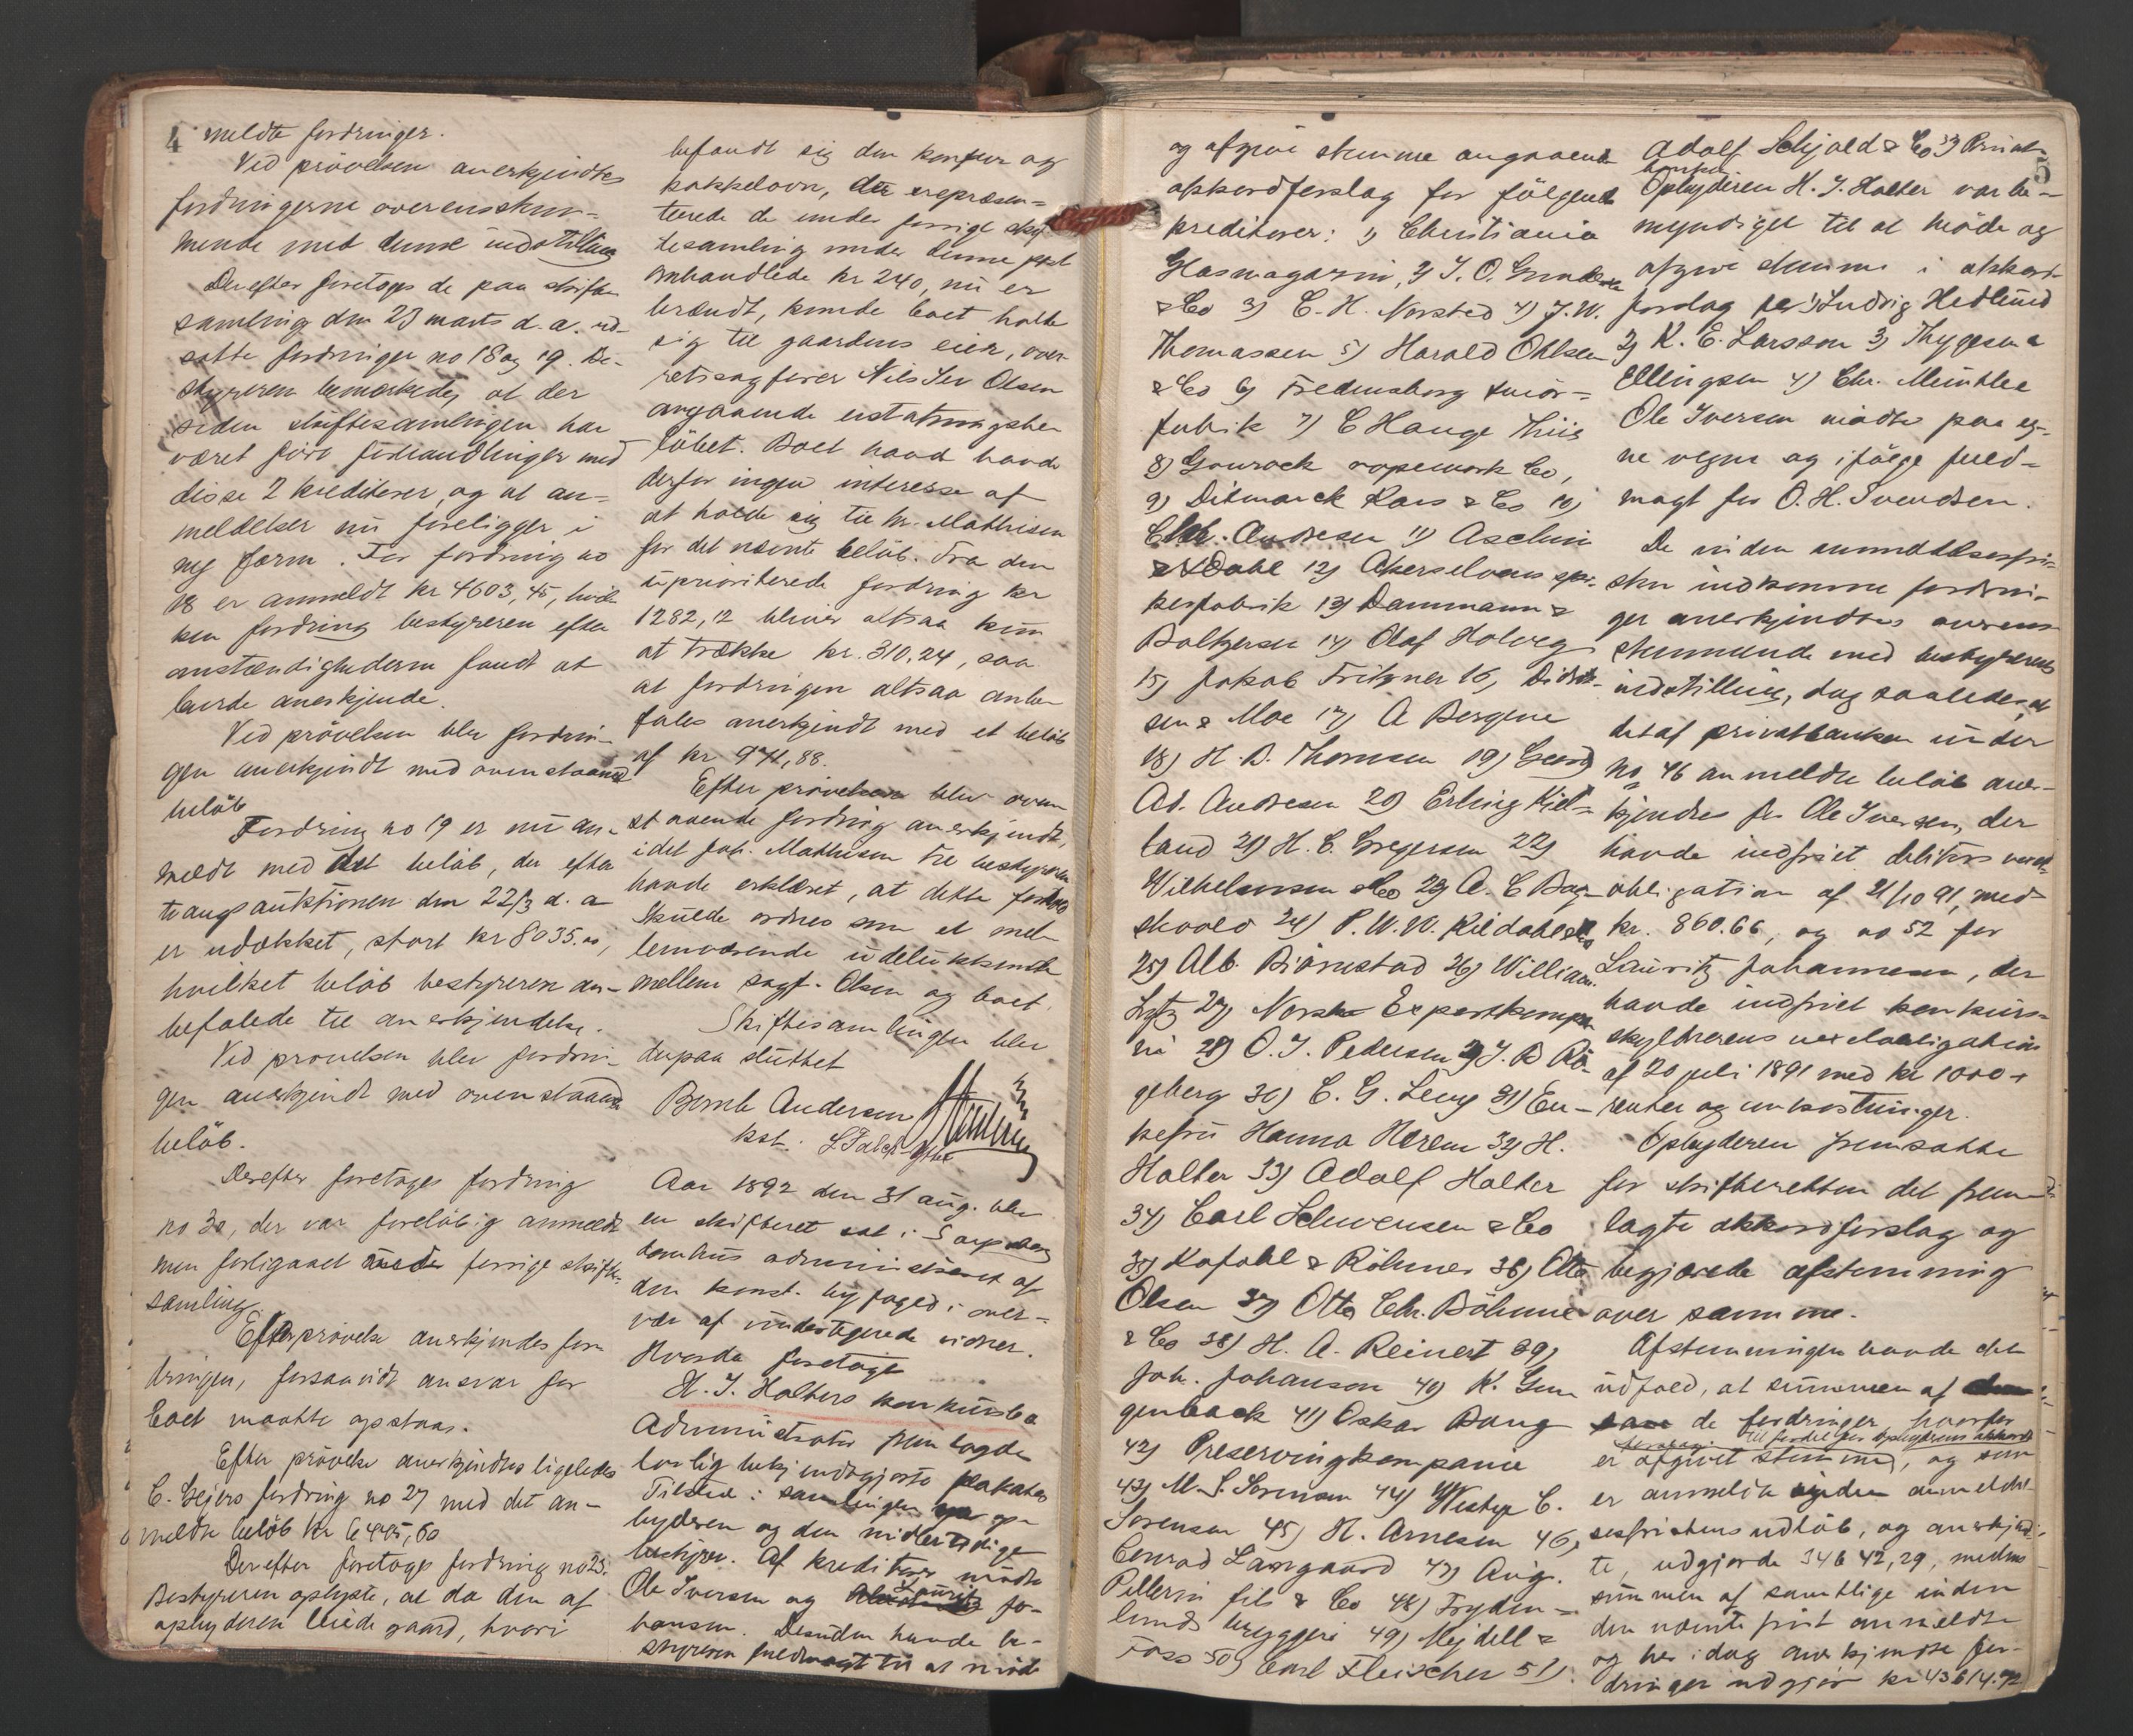 4 meldte fordringer.
Ved prøvelsen anerkjendtes
fordringerne overensstem-
mende med denne indstilling
Derefter foretoges de paa skifte
samling den 23 marts d. a. ud-
satte fordringer no 18 og 19. Be-
styreren bemærkede, at der
siden skiftesamlingen har
været ført forhandlinger med
disse 2 kreditorer, og at an-
meldelser nu foreligger i
ny form. For fordring no
18 er anmeldt kr 4603,45, hvil-
ken fordring bestyreren efter
omstændighederne fandt at
burde anerkjende.
Ved prøvelsen blev fordrin-
gen anerkjendt med ovenstaaende
beløb
Fordring no 19 er nu an-
meldt med det beløb, der efter
tvangsauktionen den 22/3 d. a
er udækket, stort kr 8035.
hvilket beløb bestyreren an-
befalede til anerkjendelse.
Ved prøvelsen blev fordrin-
gen anerkjendt med ovenstaaende
beløb.
Derefter foretoges fordring
no 30, der var foreløbig anmeldt
men forligaaet forrige skifte-
samling.
Efter prøvelse anerkjendes for-
dringen, forsaavidt ansvar for
boet maatte opstaa.
Efter prøvelse anerkjendtes ligeledes
C. Gejers fordring no 27 med det an-
meldte beløb kr 6445,60
Derefter foretoges fordring no 25.
Bestyreren oplyste, at da den af
opbyderen leiede gaard, hvori
befandt sig den komfur og
kakkelovn, der repræsen-
terede de under forrige skif-
tesamling under denne post
omhandlede kr 240, nu er
brændt, kunde boet holde
sig til gaardens eier, over-
retssagfører Nils Sev Olsen
angaaende erstatningsbe-
løbet. Boet havde
derfor ingen interesse af
at holde sig til hr. Mathisen
for det nævnte beløb. Fra den
uprioriterede fordring kr
1282,12 bliver altsaa kun
at trække kr. 310,24, saa
at fordringen altsaa anbe-
fales anerkjendt med et beløb
af kr 971,88.
Efter prøvelsen blev oven-
staaende fordring anerkjendt,
idet Joh. Mathisen til bestyreren
havde erklæret, at dette forhold
skulde ordnes som et mel-
lemværende udelukkende
mellem sagf. Olsen og boet.
Skiftesamlingen blev
derpaa sluttet
Bernh Andersen
kst.
Aar 1892 den 31 aug. blev
en skifteret sat i Sarpsborg
domhus administreret af
den konst. byfoged i over-
vær af undertegnede vidner.
Hvorda foretoges
H. J. Halters konkursbo
Administrator fremlagde
lovlig bekjendtgjorte plakater
Tilstede i samlingen op-
byderen og den midlertidige
bestyrer. Af kreditorer mødte
Ole Iversen og Lauritz Jo-
hansen. Desuden havde be-
styreren fuldmagt til at møde
5
og afgive stemme angaaende
akkordforslag for følgende
kreditorer: 1) Christiania
Glasmagazin, 2) J. O. Gundersen
& Co 3) C. H. Norsted 4) J. W.
Thomassen 5) Harald Ohlsen
& Co 6) Fredensborg smør-
fabrik 7) C Hauge Thiis
8) Gourock ropework Co,
9) Ditmarck Kars & Co 10)
Chr. Andresen 11) Aschim
& Dahl 12) Akerselvens spi-
kerfabrik 13) Dammann &
Baltzersen 14) Olaf Holweg
15) Jakob Fritzner 16) Didrik-
sen & Moe 17) A Bergene
18) H. B. Thomsen 19) Georg
Ad. Andresen 20) Erling Kjel-
land 21) H. C. Gregersen 22)
Wilhelmsen & Co 23) A. C Bag-
skoold 24) P. W. W. Kildahl & Co
25) Alb. Bjørnstad 26) William
Lytz 27) Norske Exportkompa-
ni 28) O. J. Pedersen 29) J. R Rin-
geberg 30) C. G. Levy 31) En-
kefru Hanna Herem 32) H.
Halter 33) Adolf Halter
34) Carl Schwensen & Co
35) Kafahl & Röhmer 36) Otto
Olsen 37) Otto Chr. Böhme
& Co 38) H. A. Reinert 39)
Joh. Johanson 40) K. Gun-
genback 41) Oskar Bang
42) Preservingkompanie
43) M. S. Sørensen 44) Westye C.
Sørensen 45) H. Arnesen 46)
Conrad Langaard 47) Aug.
Pellerin fils & Co 48) Fryden-
lunds bryggeri 49) Mejdell &
Foss 50) Carl Fleischer 51)
Adolf Schjold & Co 52) Privat-
banken
Opbyderen H. J. Halter var be-
myndiget til at møde og
afgive stemme i akkord-
forslag for 1) Ludvig Hedlund
2) K. E. Larsson 3) Thygesen &
Ellingsen 4) Chr. Meinthe
Ole Iversen mødte paa eg-
ne vegne og ifølge fuld-
magt for O. H. Svendsen.
De inden anmeldelsesfri-
sten indkomne fordrin-
ger anerkjendtes overens-
stemmende med bestyrerens
indstilling, dog saaledes at
det af privatbanken under
no 46 anmeldte beløb aner-
kjendtes for Ole Iversen, der
havde indfriet debitors vexel-
obligation af 21/10 91, med
kr. 860.66, og no 52 for
Lauritz Johannesen, der
havde indfriet konkurs-
skyldnerens vexelobligation
af 20 juli 1891 med kr 1000 +
renter og omkostninger.
Opbyderen fremsatte
for skifteretten det frem-
lagte akkordforslag og
begjærede afstemning
over samme.
Afstemningen havde det
udfald, at summen af
de fordringer, hvorfor
til fordel for opbyderens akkord-
forslag
er afgivet stemme, og som
er anmeldte inden anmeldel-
sesfristens udløb, og anerkjend-
te, udgjorde 34642,29, medens
summen af samtlige inden
den nævnte frist anmeldte
og her i dag anerkjendte for-
dringer udgjør kr 43614.72